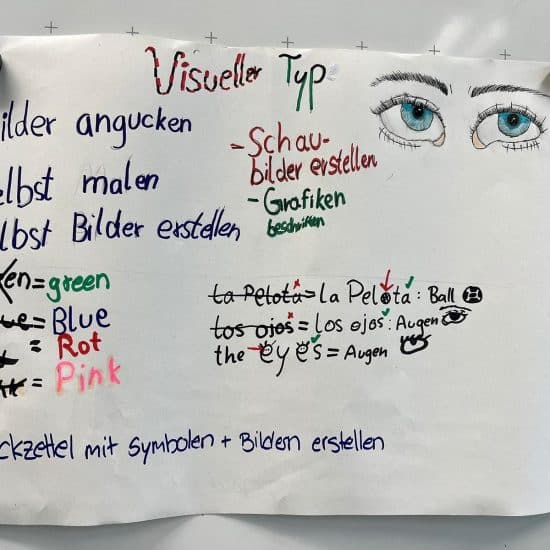 Visueller Typ
ilder angucken
elbst malen
lbst Bilder erstellen
- Schau-
bilder erstellen
- Grafiken
beschriften
en = green
= Blue
= Rot
= Pink
La Pelota = La Pelota : Ball
Los ojos = Los ojos : Augen
the eyes = Augen
ckzettel mit Symbolen + Bildern erstellen